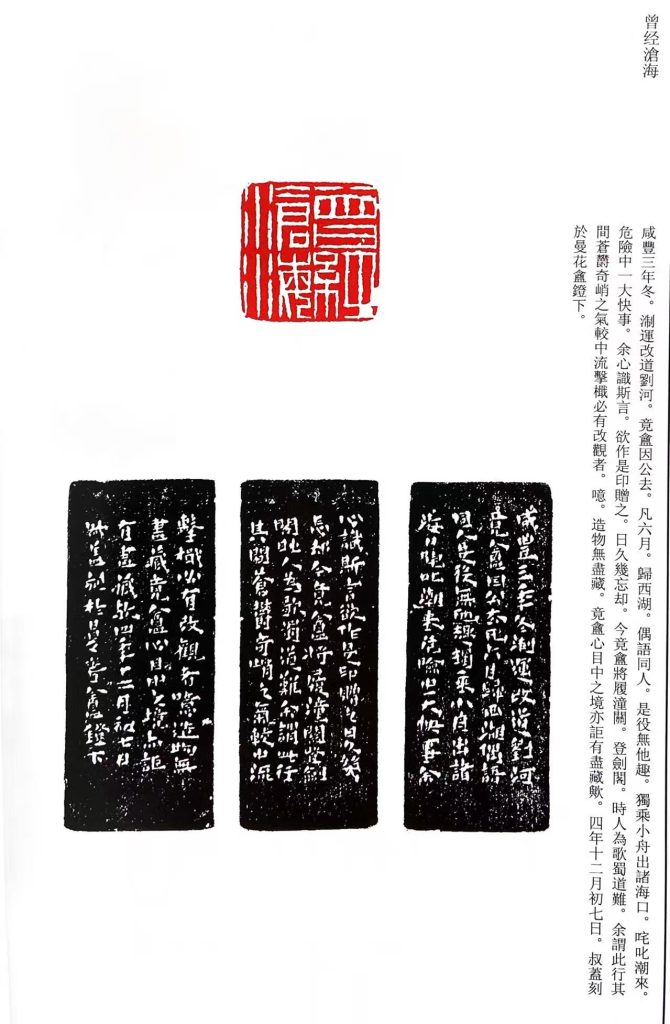 曾经滄海
咸豐三年冬。淛運改道劉河。竟盦因公去。凡六月。歸西湖。偶語同人。是役無他趣。獨乘小舟出諸海口。咤叱潮來。
危險中一大快事。余心識斯言。欲作是印贈之。日久幾忘却。今竟盦將履潼關。登劍閣。時人為歌蜀道難。余謂此行其
間蒼欝奇峭之氣較中流擊檝必有改觀者。噫。造物無盡藏。竟盦心目中之境亦詎有盡藏歟。四年十二月初七日。叔蓋刻
於曼花盦鐙下。
曾經
滄海
咸豐三年冬淛運改道劉河
竟盦因公去凡六月歸西湖偶語
同人是役無他趣獨乘小舟出諸
海口咤叱潮來危險中一大快事余
心識斯言欲作是印贈之日久幾
忘却今竟盦將履潼關登劍
閣時人為歌蜀道難余謂此行
其間蒼欝奇峭之氣較中流
擊檝必有改觀者噫造物無
盡藏竟盦心目中之境亦詎
有盡藏歟四年十二月初七日
叔蓋刻於曼花盦鐙下